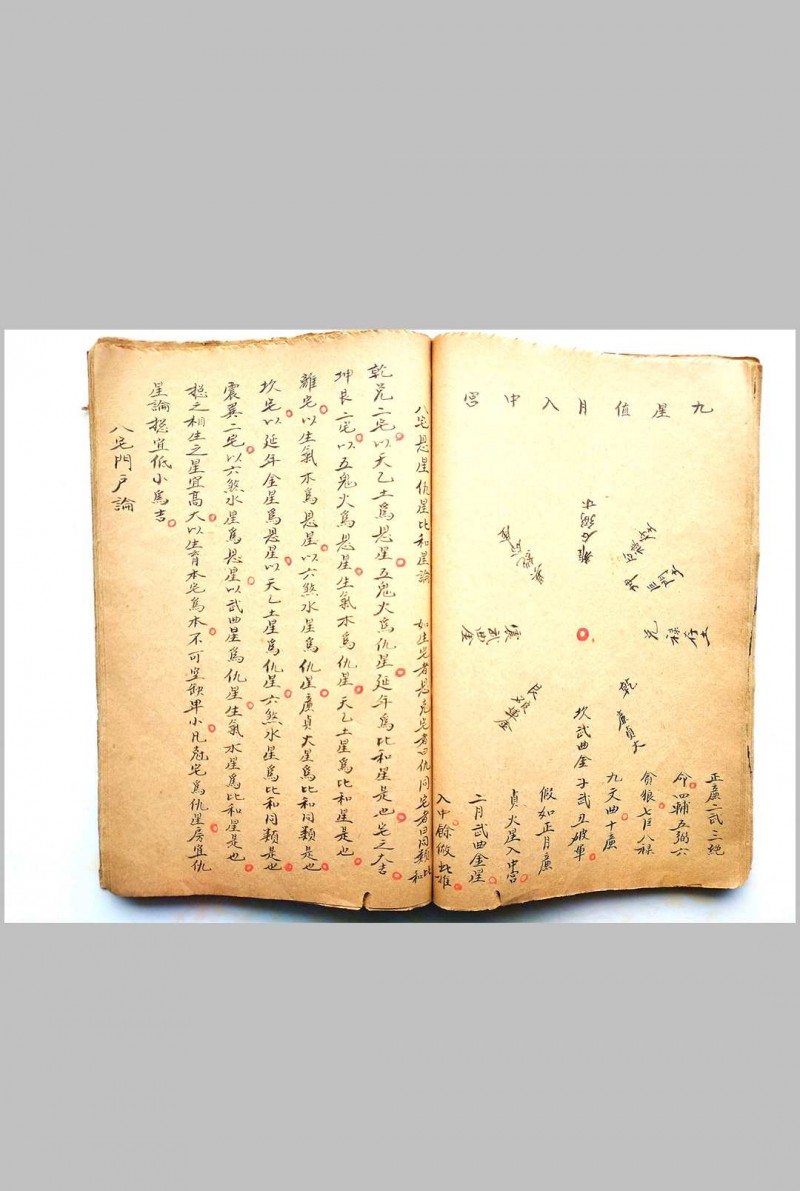 九星值月入中宮
正廉二武三絕
命四輔五弼六
俞狼七巨八祿
九文曲十廉
子武丑破軍
假如正月廉
貞火星入中宮
二月武曲金星
入中餘倣此推
兌祿存土
乾廉貞火
坎武曲金
艮破軍金
震武曲金
八宅恩星仇星比和星論 如生宅者恩克宅者曰仇同宅者曰同類比和
乾兌二宅以天乙土爲恩星五鬼火爲仇星延年爲比和星是也宅之大吉
坤艮二宅以五鬼火爲恩星生氣木爲仇星天乙土星爲比和星是也
離宅以生氣木爲恩星以六煞水星爲仇星廉貞火星爲比和同類是也
坎宅以延年金星爲恩星以天乙土星爲仇星六煞水星爲比和同類是也
震巽二宅以六煞水星爲恩星以武曲星爲仇星生氣水星爲比和星是也
總之相生之星宜高大以生育本宅爲本不可空缺卑小凡尅宅爲仇星房宜仇
星論總宜低小爲吉
八宅門戶論